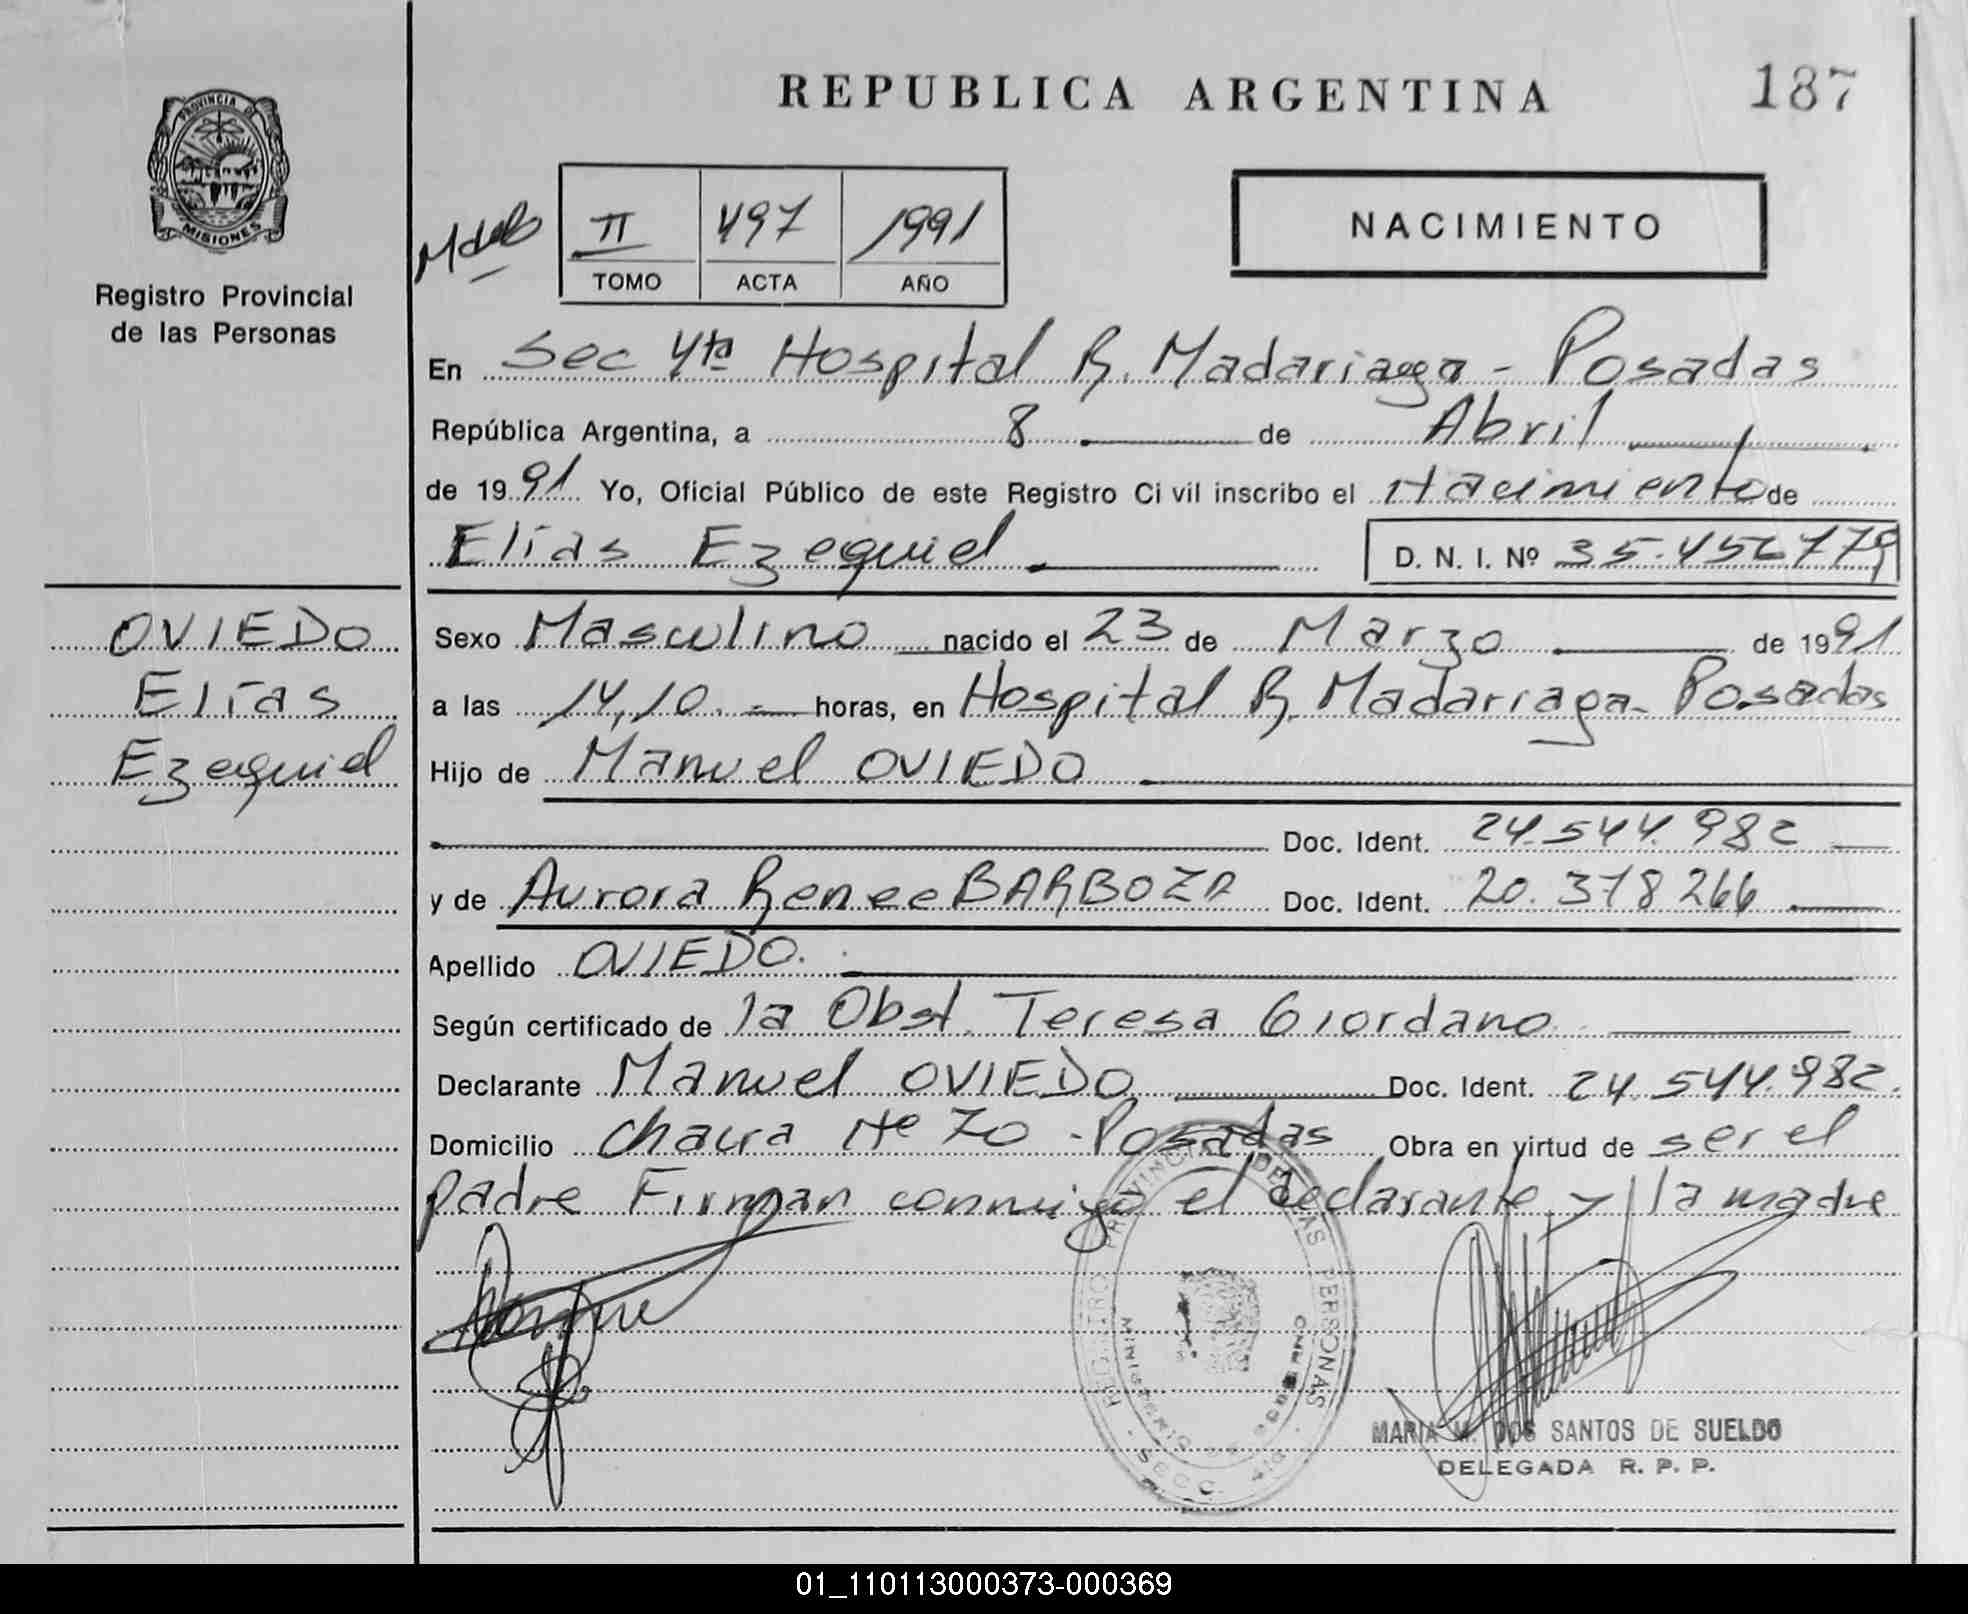 REPUBLICA ARGENTINA
187
PROVINCIA DE
MISIONES
Registro Provincial
de las Personas
II 497 1991
TOMO ACTA AÑO
NACIMIENTO
En Sec 4ta Hospital R. Madariaga - Posadas
República Argentina, a 8 de Abril
de 1991 Yo, Oficial Público de este Registro Civil inscribo el Nacimiento de
Elías Ezequiel D. N. I. Nº 35.456779
OVIEDO
Elías
Ezequiel
Sexo Masculino nacido el 23 de Marzo de 1991
a las 14,10.- horas, en Hospital R. Madariaga - Posadas
Hijo de Manuel OVIEDO
Doc. Ident. 24.544.982
y de Aurora Renee BARBOZA Doc. Ident. 20.378266
Apellido OVIEDO.
Según certificado de la Obst. Teresa Giordano
Declarante Manuel OVIEDO Doc. Ident. 24.544.982.
Domicilio Chacra Nº 70 - Posadas Obra en virtud de ser el
padre Firman conmigo el declarante y la madre
REGISTRO PROVINCIAL DE LAS PERSONAS
MINISTERIO DE GOBIERNO
SECC. 4ta
MARIA M. DOS SANTOS DE SUELDO
DELEGADA R. P. P.
01_110113000373-000369